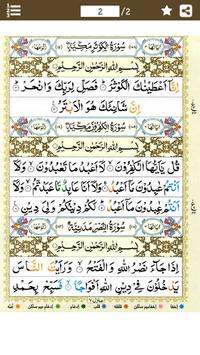 2
/ 2
سُوْرَةُ الْكَوْثَرِ مَكِّيَّةٌ
بِسْمِ اللّٰهِ الرَّحْمٰنِ الرَّحِيْمِ
اِنَّاۤ اَعْطَيْنٰكَ الْكَوْثَرَ ۞ فَصَلِّ لِرَبِّكَ وَانْحَرْ ۞
اِنَّ شَانِئَكَ هُوَ الْاَبْتَرُ ۞
سُوْرَةُ الْكٰفِرُوْنَ مَكِّيَّةٌ
بِسْمِ اللّٰهِ الرَّحْمٰنِ الرَّحِيْمِ
قُلْ يٰۤاَيُّهَا الْكٰفِرُوْنَ ۞ لَاۤ اَعْبُدُ مَا تَعْبُدُوْنَ ۞ وَلَاۤ
اَنْتُمْ عٰبِدُوْنَ مَاۤ اَعْبُدُ ۞ وَلَاۤ اَنَا عَابِدٌ مَّا عَبَدْتُّمْ ۞ وَلَاۤ
اَنْتُمْ عٰبِدُوْنَ مَاۤ اَعْبُدُ ۞ لَكُمْ دِيْنُكُمْ وَلِيَ دِيْنِ ۞
سُوْرَةُ النَّصْرِ مَدَنِيَّةٌ
بِسْمِ اللّٰهِ الرَّحْمٰنِ الرَّحِيْمِ
اِذَا جَآءَ نَصْرُ اللّٰهِ وَالْفَتْحُ ۞ وَرَاَيْتَ النَّاسَ يَدْ
خُلُوْنَ فِيْ دِيْنِ اللّٰهِ اَفْوَاجًا ۞ فَسَبِّحْ بِحَمْدِ